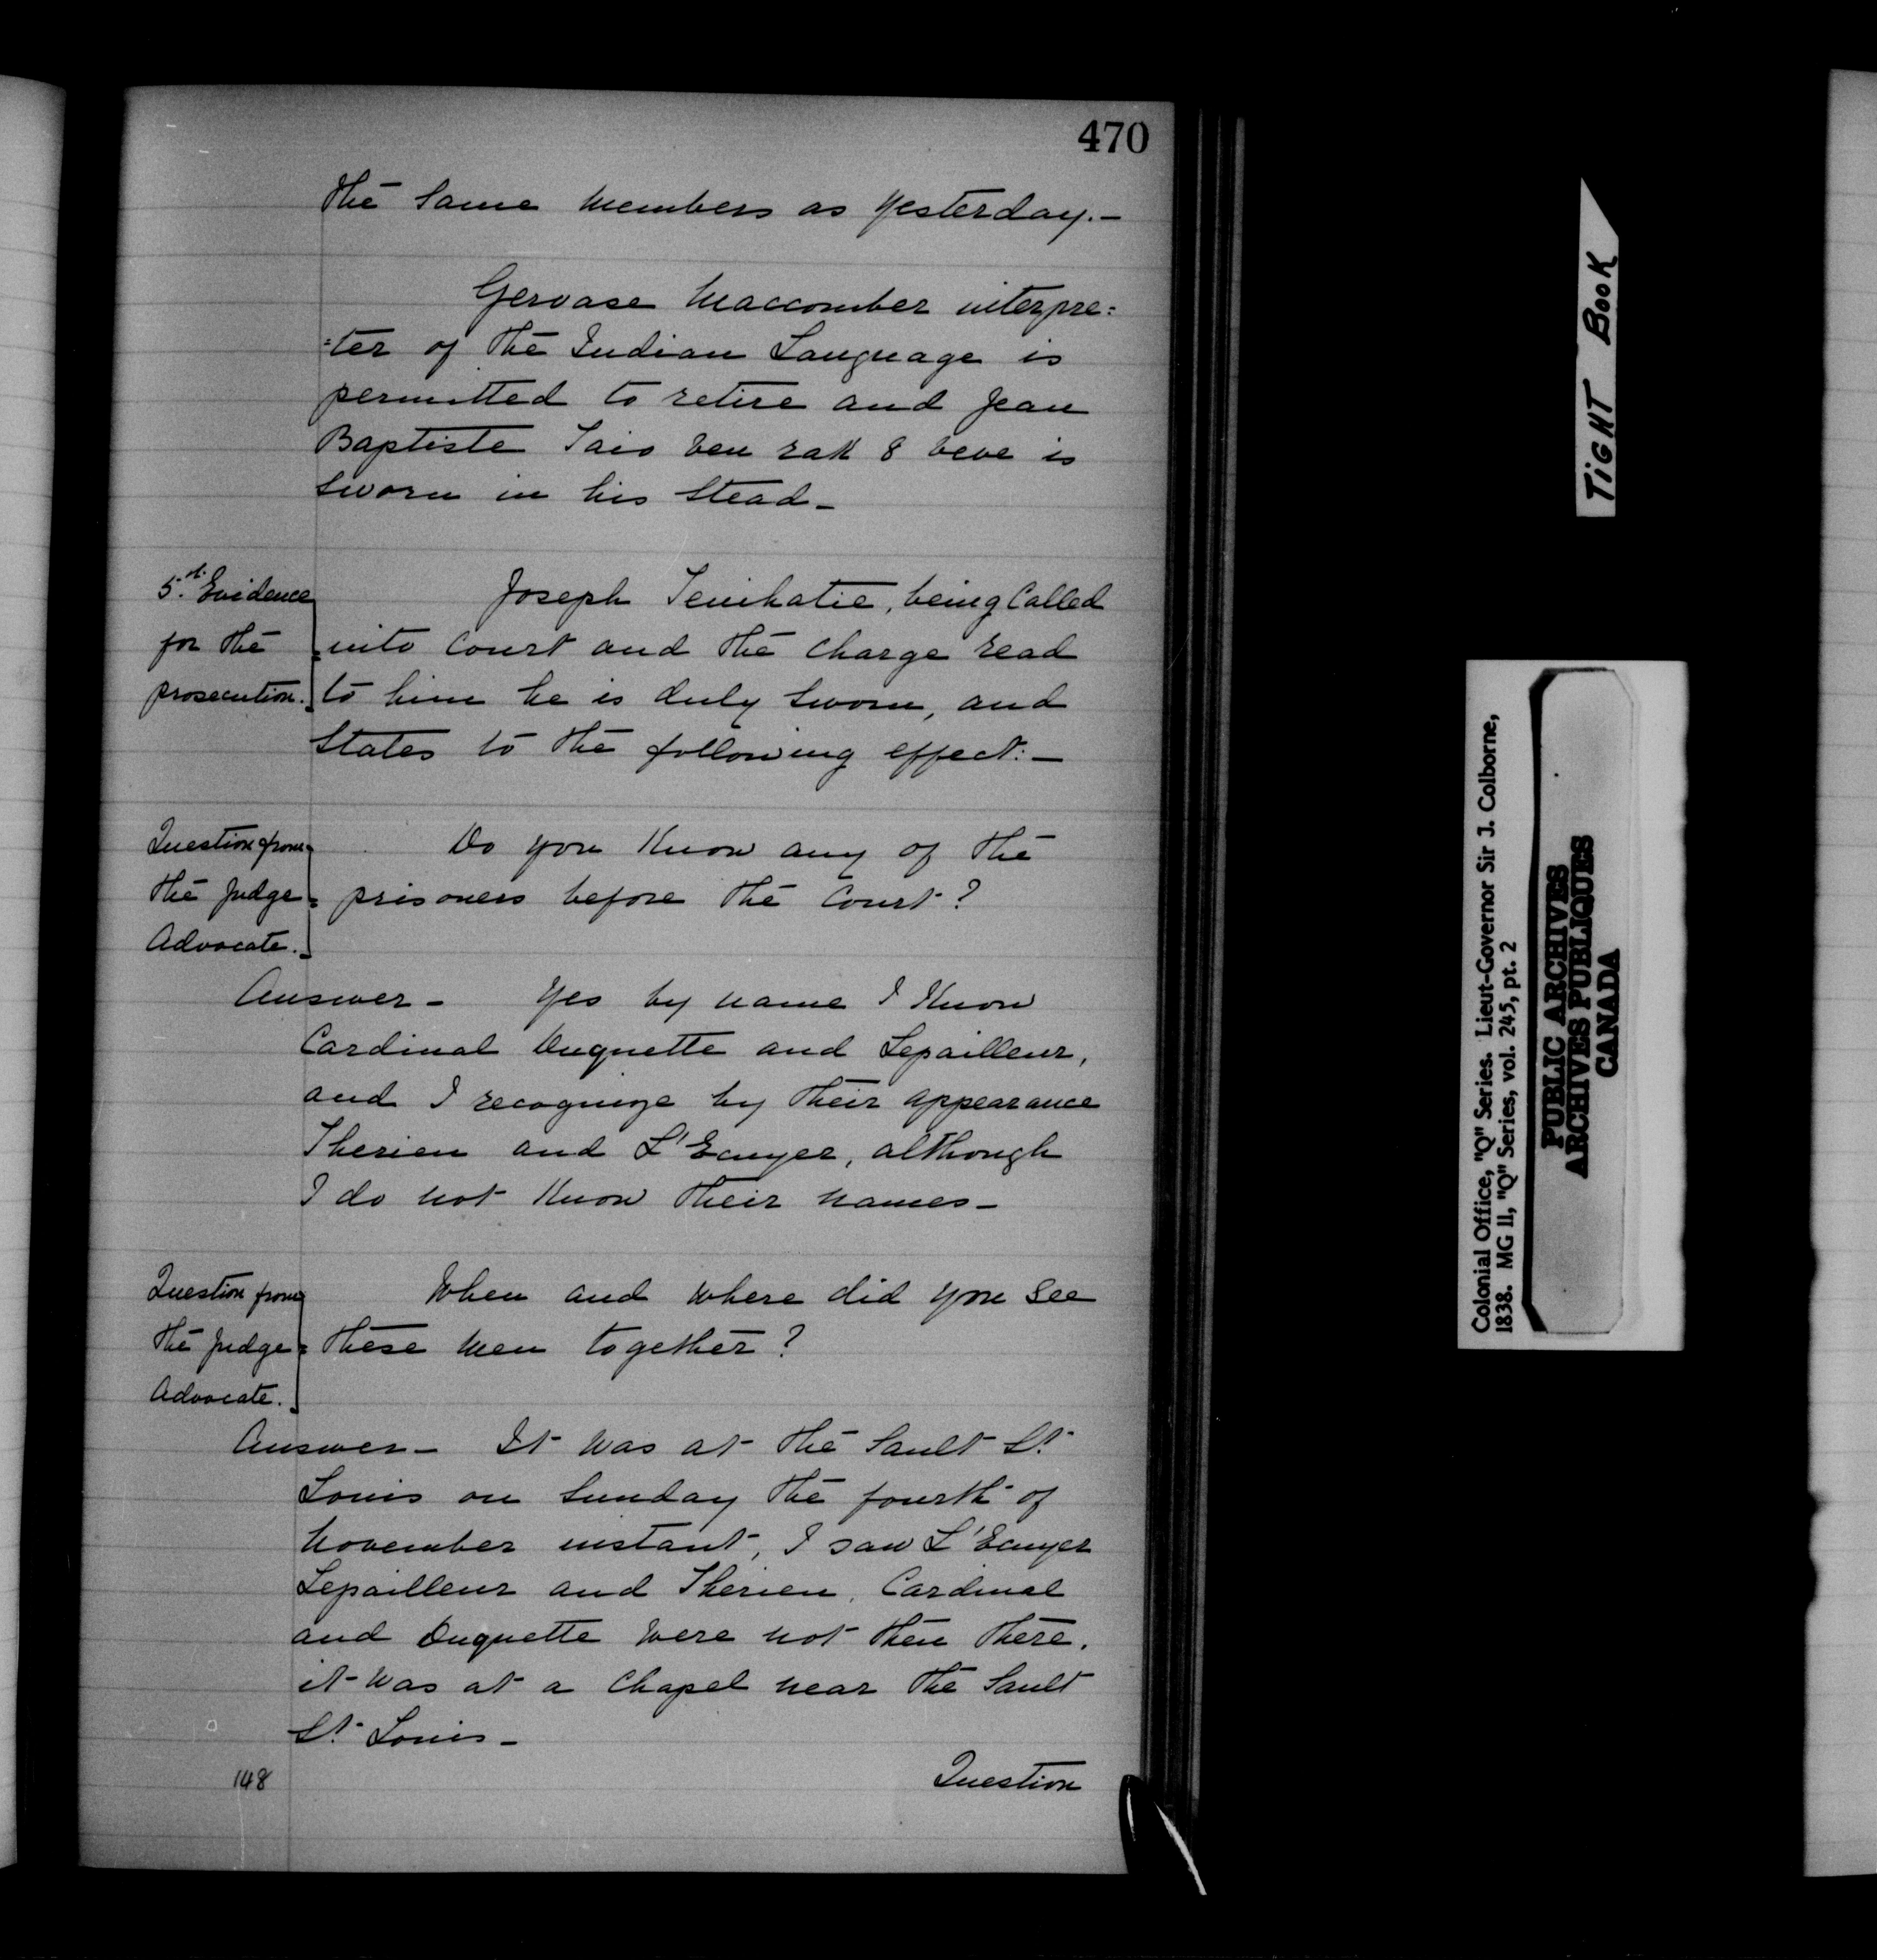 470
the same members as yesterday.—
Gervase Maccomber interpre=
=ter of the Indian Language is
permitted to retire and Jean
Baptiste Taio ven rak 8 veve is
sworn in his stead—
5.th Evidence
for the
prosecution.
Joseph Tenihatie, being Called
into Court and the charge read
to him he is duly sworn, and
States to the following effect:—
Question from
the Judge
Advocate.
Do you Know any of the
prisoners before the Court?
Answer— Yes by name I Know
Cardinal Duquette and Lepailleur,
and I recognize by their appearance
Therien and L'Ecuyer, although
I do not Know their names—
Question from
the Judge
Advocate.
When and where did you see
these men together?
Answer— It was at the Sault St.
Louis on Sunday the fourth of
November instant, I saw L'Ecuyer
Lepailleur and Therien, Cardinal
and Duquette were not then there.
it was at a Chapel near the Sault
St. Louis—
148
Question
TIGHT BOOK
Colonial Office, "Q" Series. Lieut-Governor Sir J. Colborne,
1838. MG 11, "Q" Series, vol. 245, pt. 2
PUBLIC ARCHIVES
ARCHIVES PUBLIQUES
CANADA